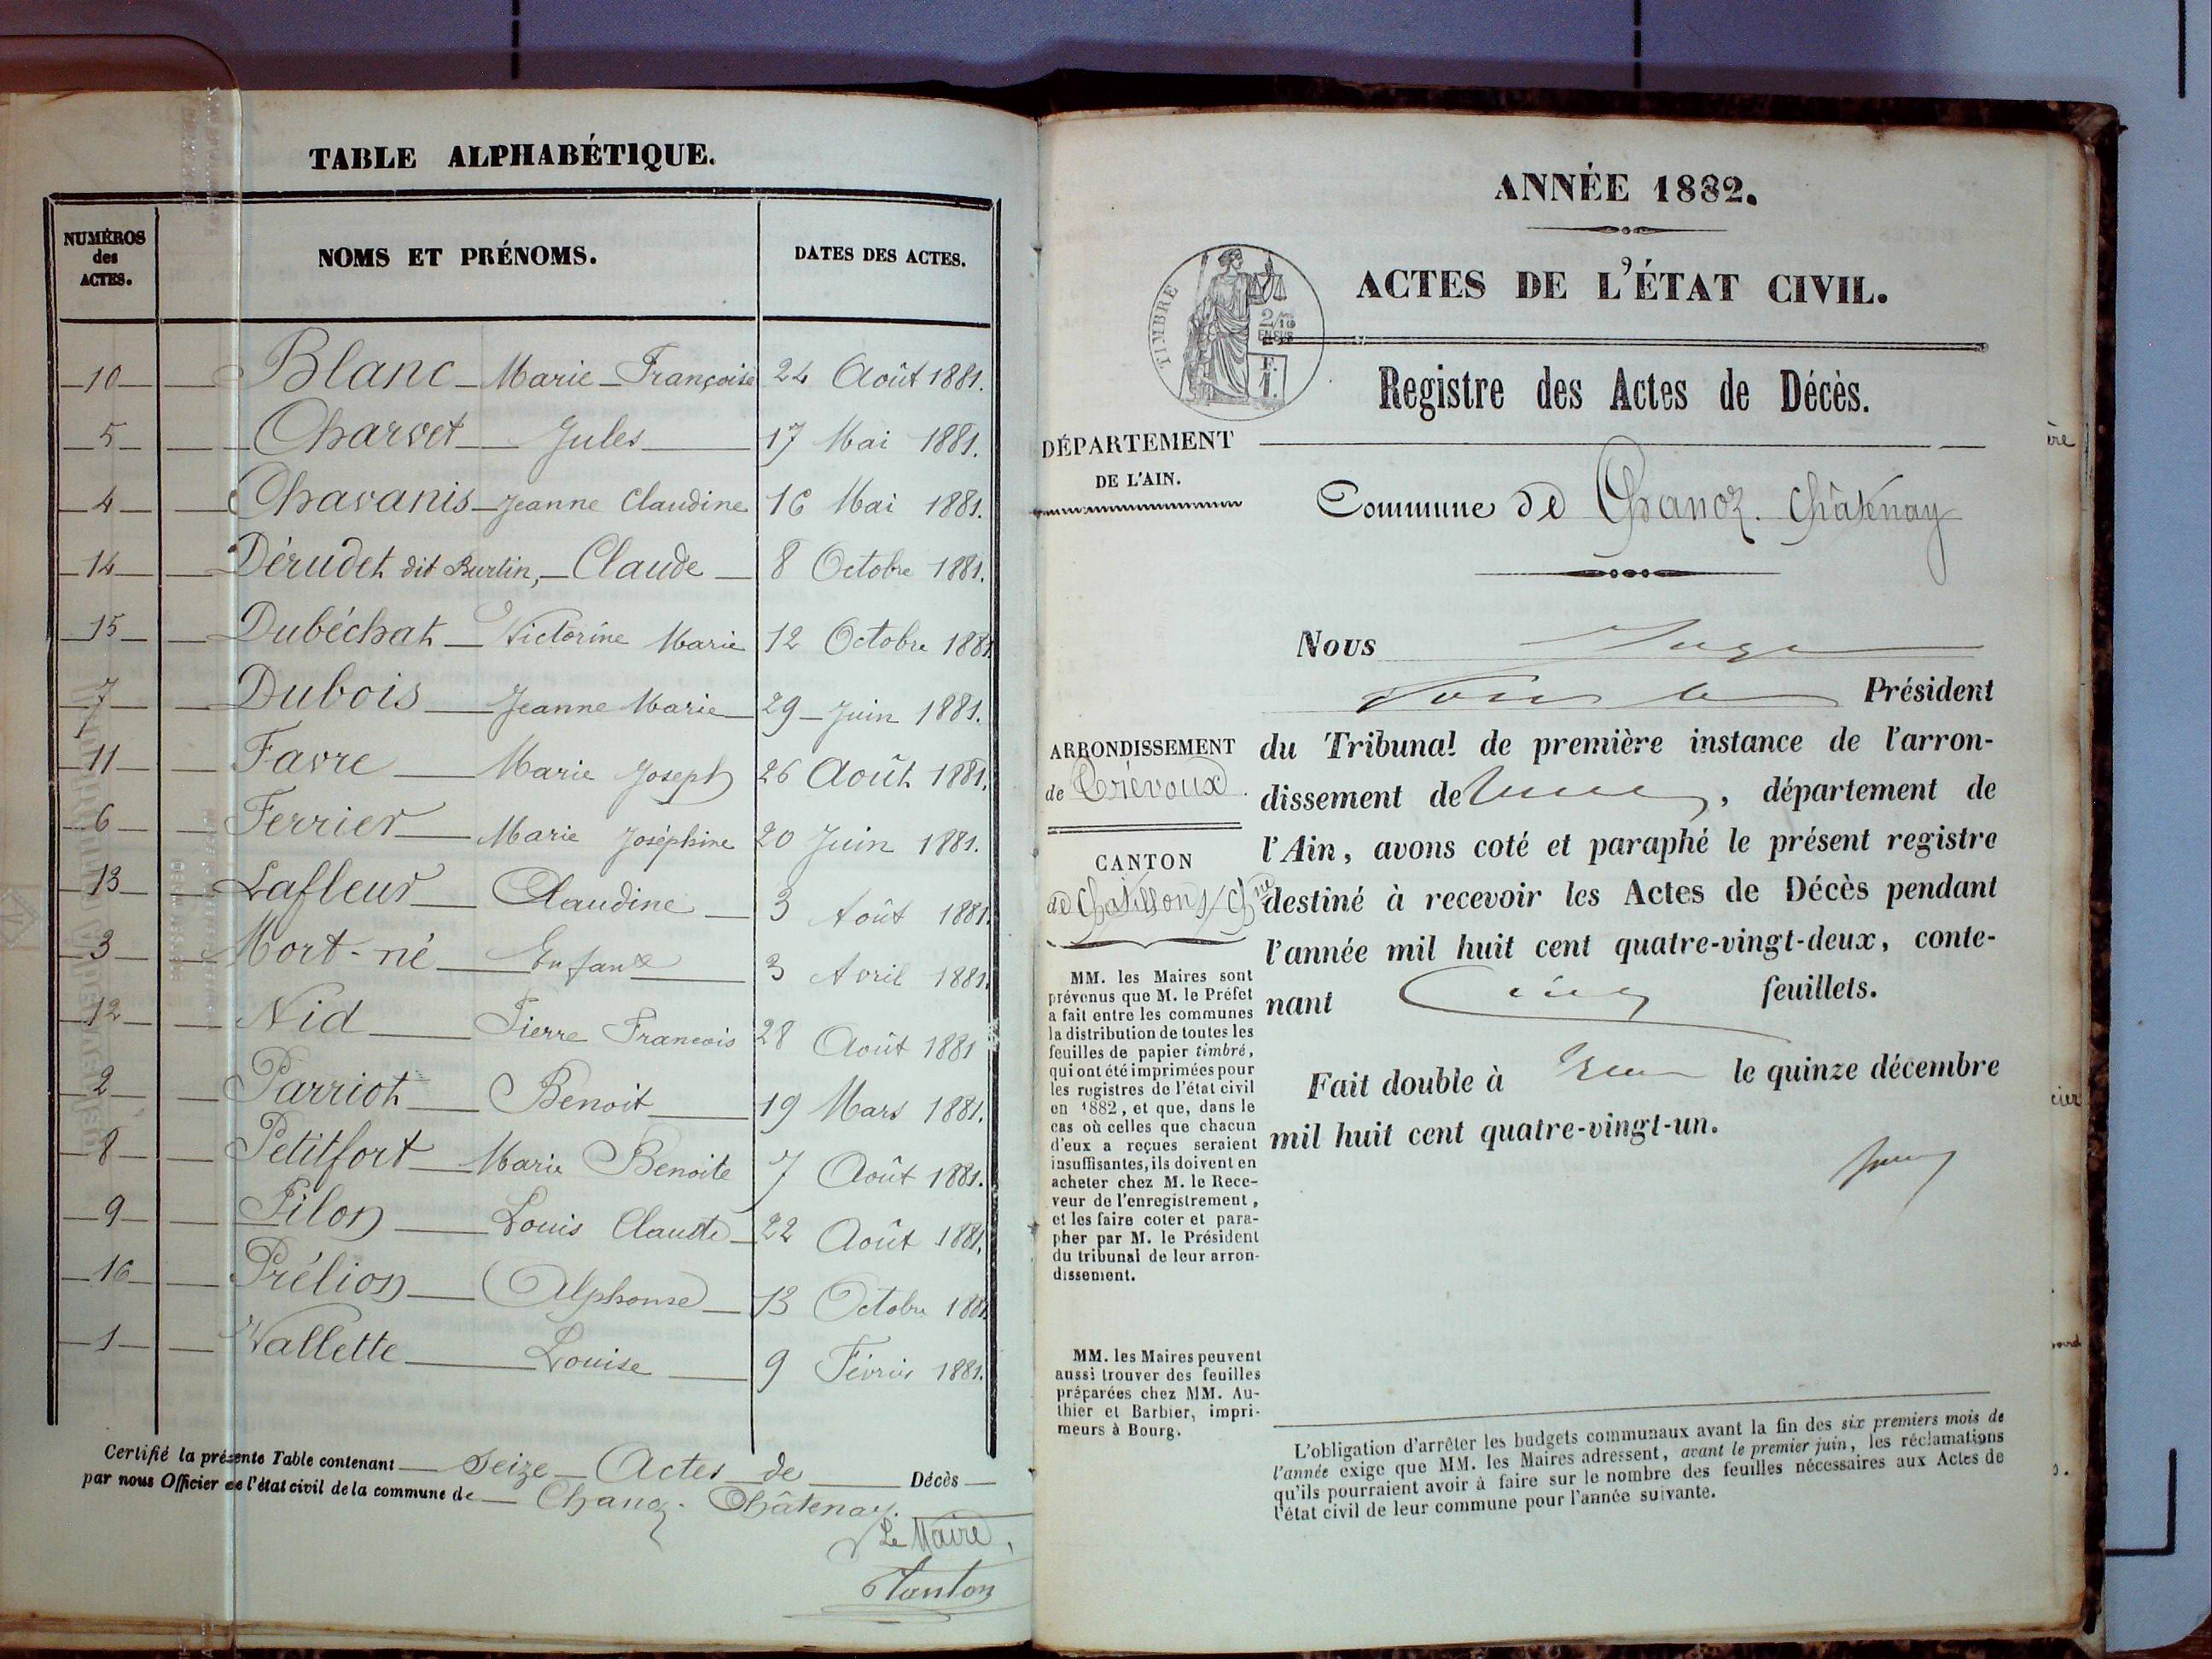 TABLE ALPHABÉTIQUE.
NUMÉROS des ACTES. NOMS ET PRÉNOMS. DATES DES ACTES.
10 Blanc Marie Françoise 24 Août 1881.
5 Charvet Jules 17 Mai 1881.
4 Chavanis Jeanne Claudine 16 Mai 1881.
14 Dérudet dit Burtin, Claude 8 Octobre 1881.
15 Dubéchat Victorine Marie 12 Octobre 1881
7 Dubois Jeanne Marie 29 Juin 1881.
11 Favre Marie Joseph 26 Août 1881.
6 Ferrier Marie Joséphine 20 Juin 1881.
13 Lafleur Claudine 3 Août 1881.
3 Mort-né Enfant 3 Avril 1881.
12 Nid Pierre Francois 28 Août 1881
2 Parriot Benoit 19 Mars 1881.
8 Petitfort Marie Benoite 7 Août 1881.
9 Pilon Louis Claude 22 Août 1881.
16 Prélion Alphonse 13 Octobre 1881
1 Vallette Louise 9 Février 1881.
Certifié la présente Table contenant Seize Actes de Décès
par nous Officier de l'état civil de la commune de Chanoz-Châtenay.
Le Maire,
ANNÉE 1882.
ACTES DE L'ÉTAT CIVIL.
TIMBRE
2/10
EN SUS
F.
1.
Registre des Actes de Décès.
DÉPARTEMENT
DE L'AIN.
Commune de Chanoz. Châtenay
Nous Juge
Président
du Tribunal de première instance de l'arron-
dissement de , département de
l'Ain, avons coté et paraphé le présent registre
destiné à recevoir les Actes de Décès pendant
l'année mil huit cent quatre-vingt-deux, conte-
nant Cinq feuillets.
Fait double à le quinze décembre
mil huit cent quatre-vingt-un.
ARRONDISSEMENT
de Trévoux.
CANTON
de Châtillon s/ Chne
MM. les Maires sont
prévenus que M. le Préfet
a fait entre les communes
la distribution de toutes les
feuilles de papier timbré,
qui ont été imprimées pour
les registres de l'état civil
en 1882, et que, dans le
cas où celles que chacun
d'eux a reçues seraient
insuffisantes, ils doivent en
acheter chez M. le Rece-
veur de l'enregistrement,
et les faire coter et para-
pher par M. le Président
du tribunal de leur arron-
dissement.
MM. les Maires peuvent
aussi trouver des feuilles
préparées chez MM. Au-
thier et Barbier, impri-
meurs à Bourg.
L'obligation d'arrêter les budgets communaux avant la fin des six premiers mois de
l'année exige que MM. les Maires adressent, avant le premier juin, les réclamations
qu'ils pourraient avoir à faire sur le nombre des feuilles nécessaires aux Actes de
l'état civil de leur commune pour l'année suivante.